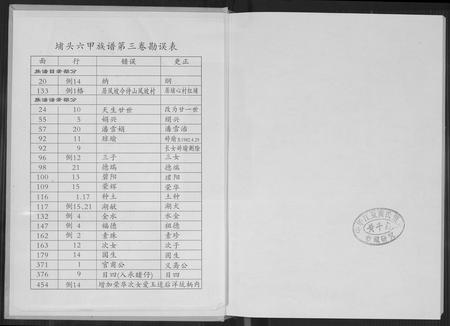 埔头六甲族谱第三卷勘误表
面 行 错误 更正
族谱目录部分
20 倒14 纳 纲
133 倒1格 居凤坡令侍山凤坡村 居埔心村红埔
族谱谱世部分
24 10 天生廿世 改为廿一世
55 5 娟兴 绢兴
57 20 潘雪娟 潘雪治
92 11 琼瑜 
92 9 长女岭瑜删除
96 倒12 三子 三女
98 21 德瑞 德端
100 13 碧阳 
109 15 荣辉 荣华
116 1.17 种土 土种
117 倒15、21 湖献 湖犬
132 倒4 金水 水金
147 倒4 福德 祖德
162 倒2 素珠 素珍
163 12 次女 次子
179 14 国生 国生
371 1 官裔公 义斋公
376 9 目四(入承瞳仔) 目四
454 倒14 增加荣华次女爱玉适后洋坑柄内